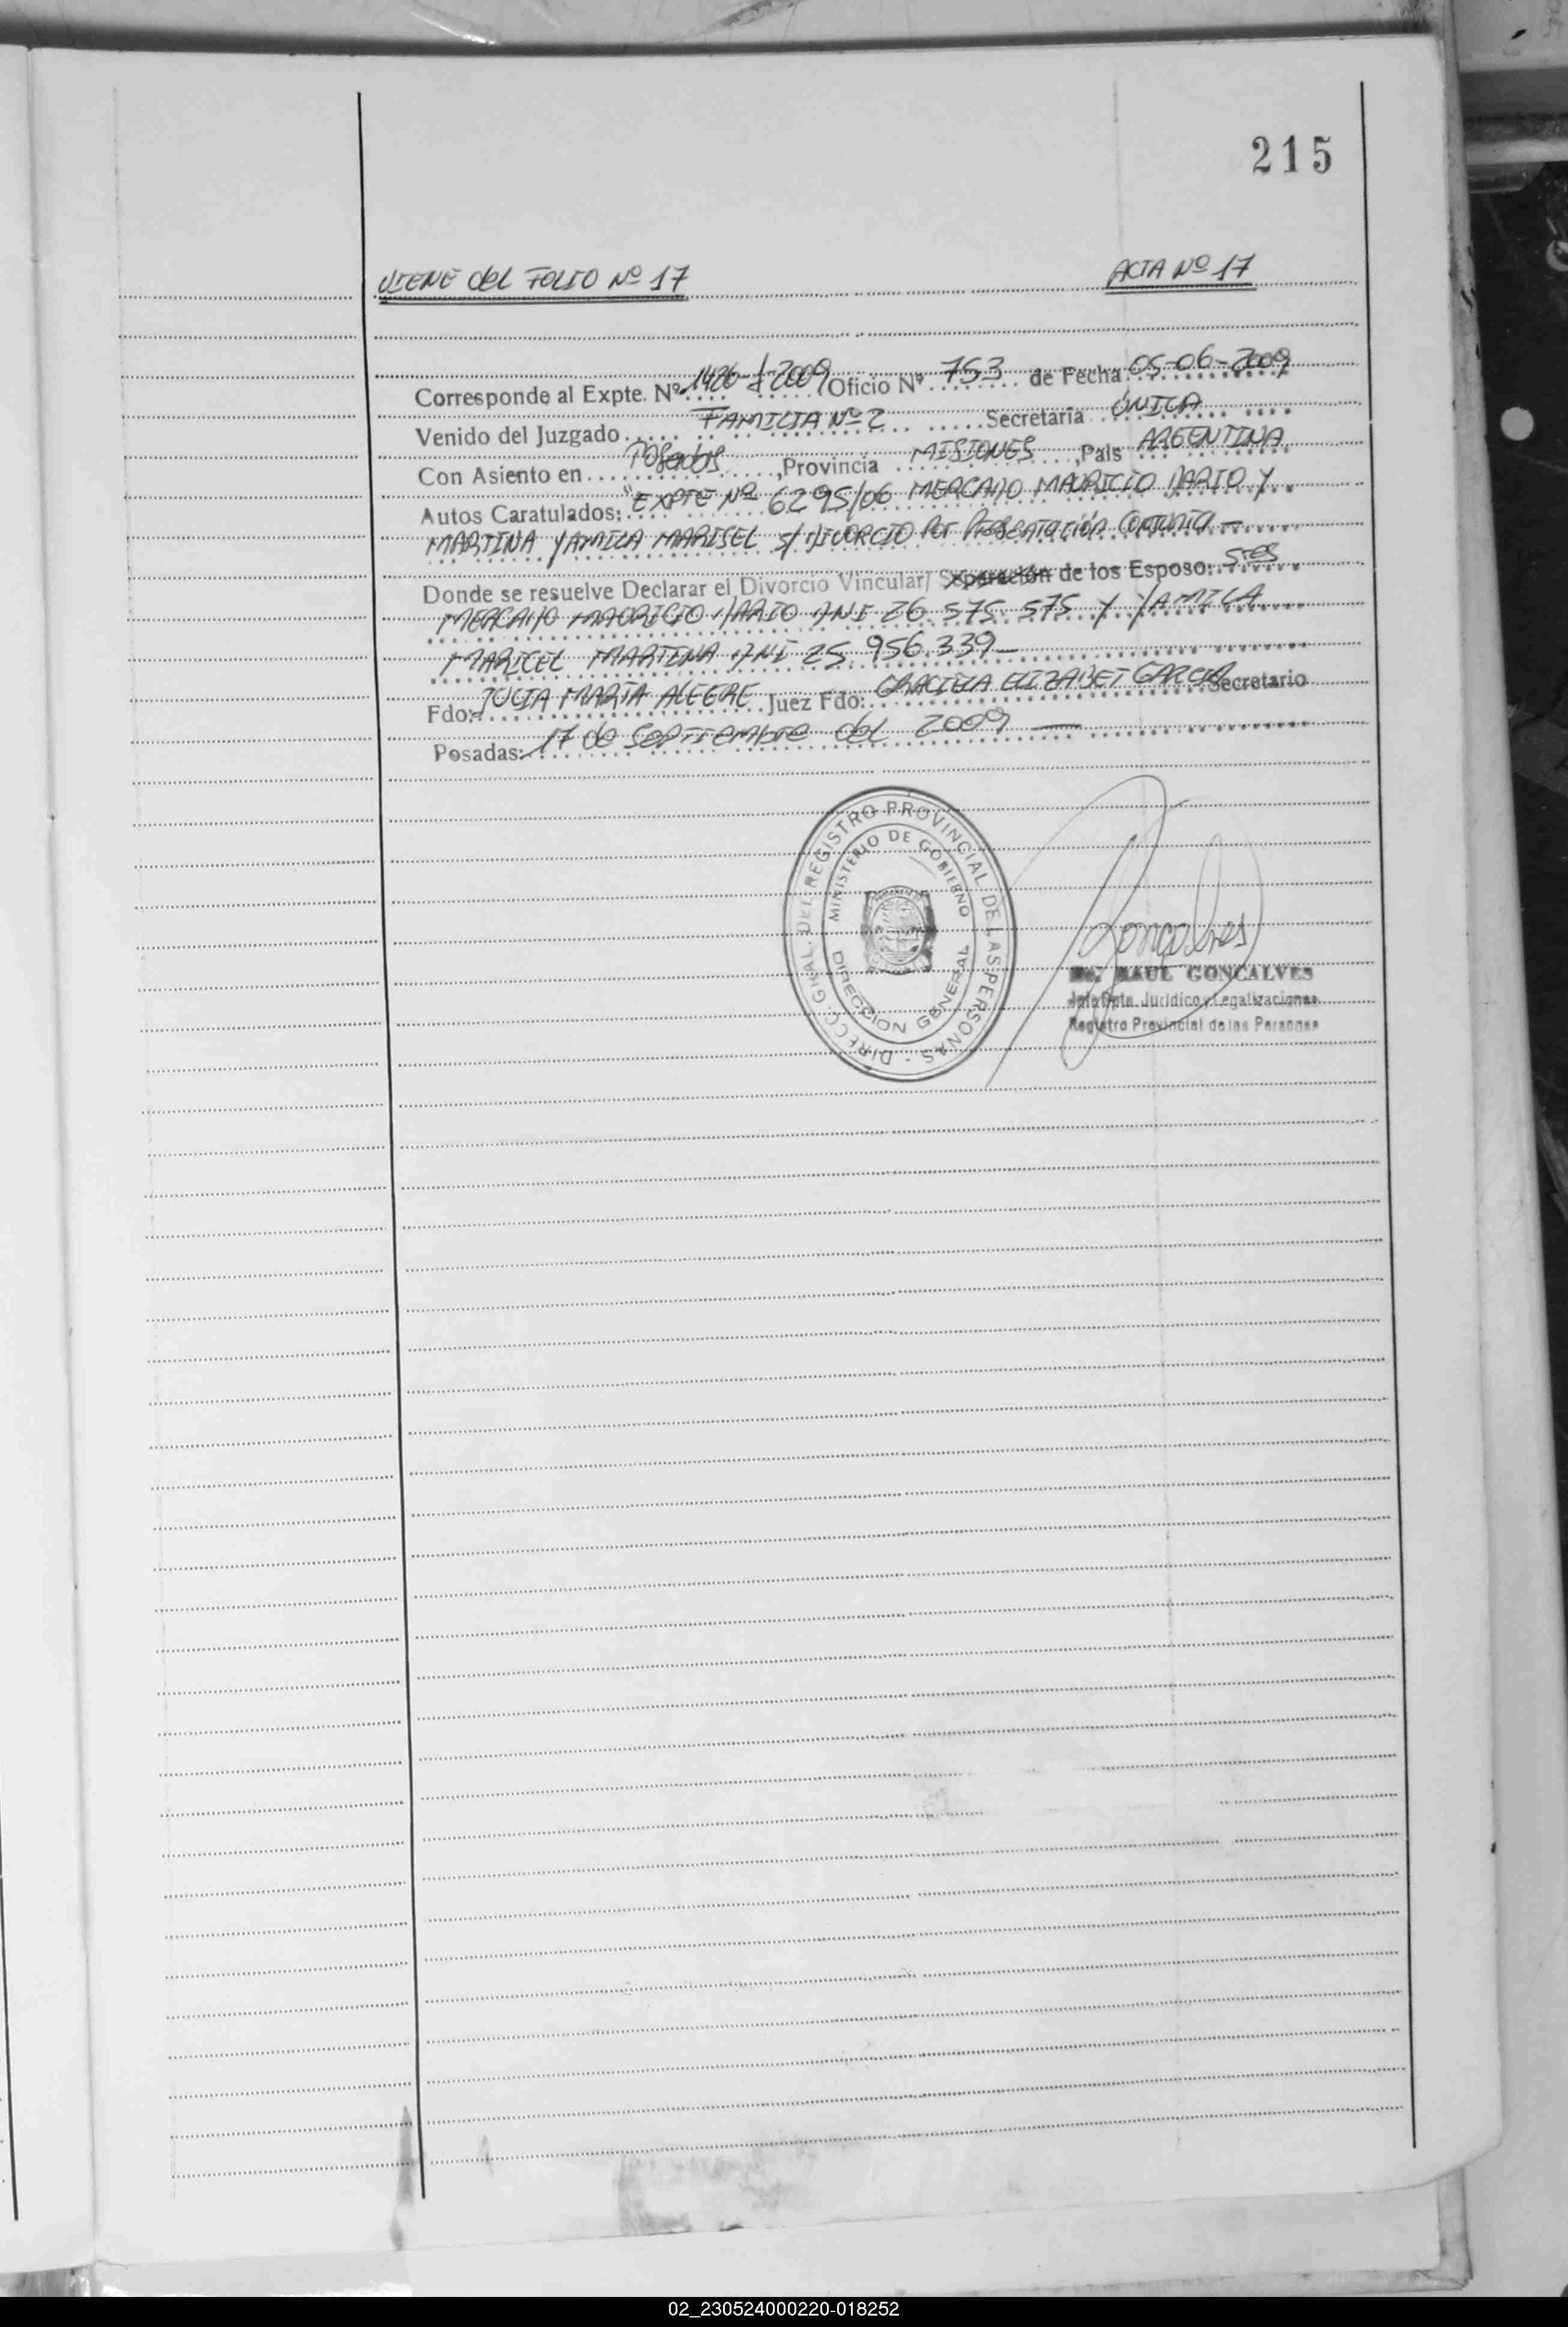 215
VIENE del FOLIO Nº 17 ACTA Nº 17
Corresponde al Expte. Nº 1426-J-2009 Oficio Nº 753 de Fecha 05-06-2009
Venido del Juzgado FAMILIA Nº 2 Secretaría ÚNICA
Con Asiento en Posadas, Provincia MISIONES, País ARGENTINA
Autos Caratulados: "EXPTE Nº 6295/06 MERCADO MAURICIO DARIO Y
MARTINA YAMILA MARISEL S/ DIVORCIO Por Presentación Conjunta -
Donde se resuelve Declarar el Divorcio Vincular/ Separación de los Esposo: Sres
MERCADO MAURICIO DARIO DNI 26.575.575 Y YAMILA
MARICEL MARTINA DNI 25.956.339 -
Fdo: JULIA MARIA ALEGRE Juez Fdo: GRACIELA ELIZABET GARCIA Secretario
Posadas: 17 de Septiembre del 2009 —
DIRECC. GRAL. DEL REGISTRO PROVINCIAL DE LAS PERSONAS -
MINISTERIO DE GOBIERNO
DIRECCION GENERAL
Goncalves
RAUL GONCALVES
Jefe Dpto. Jurídico y Legalizaciones
Registro Provincial de las Personas
02_230524000220-018252